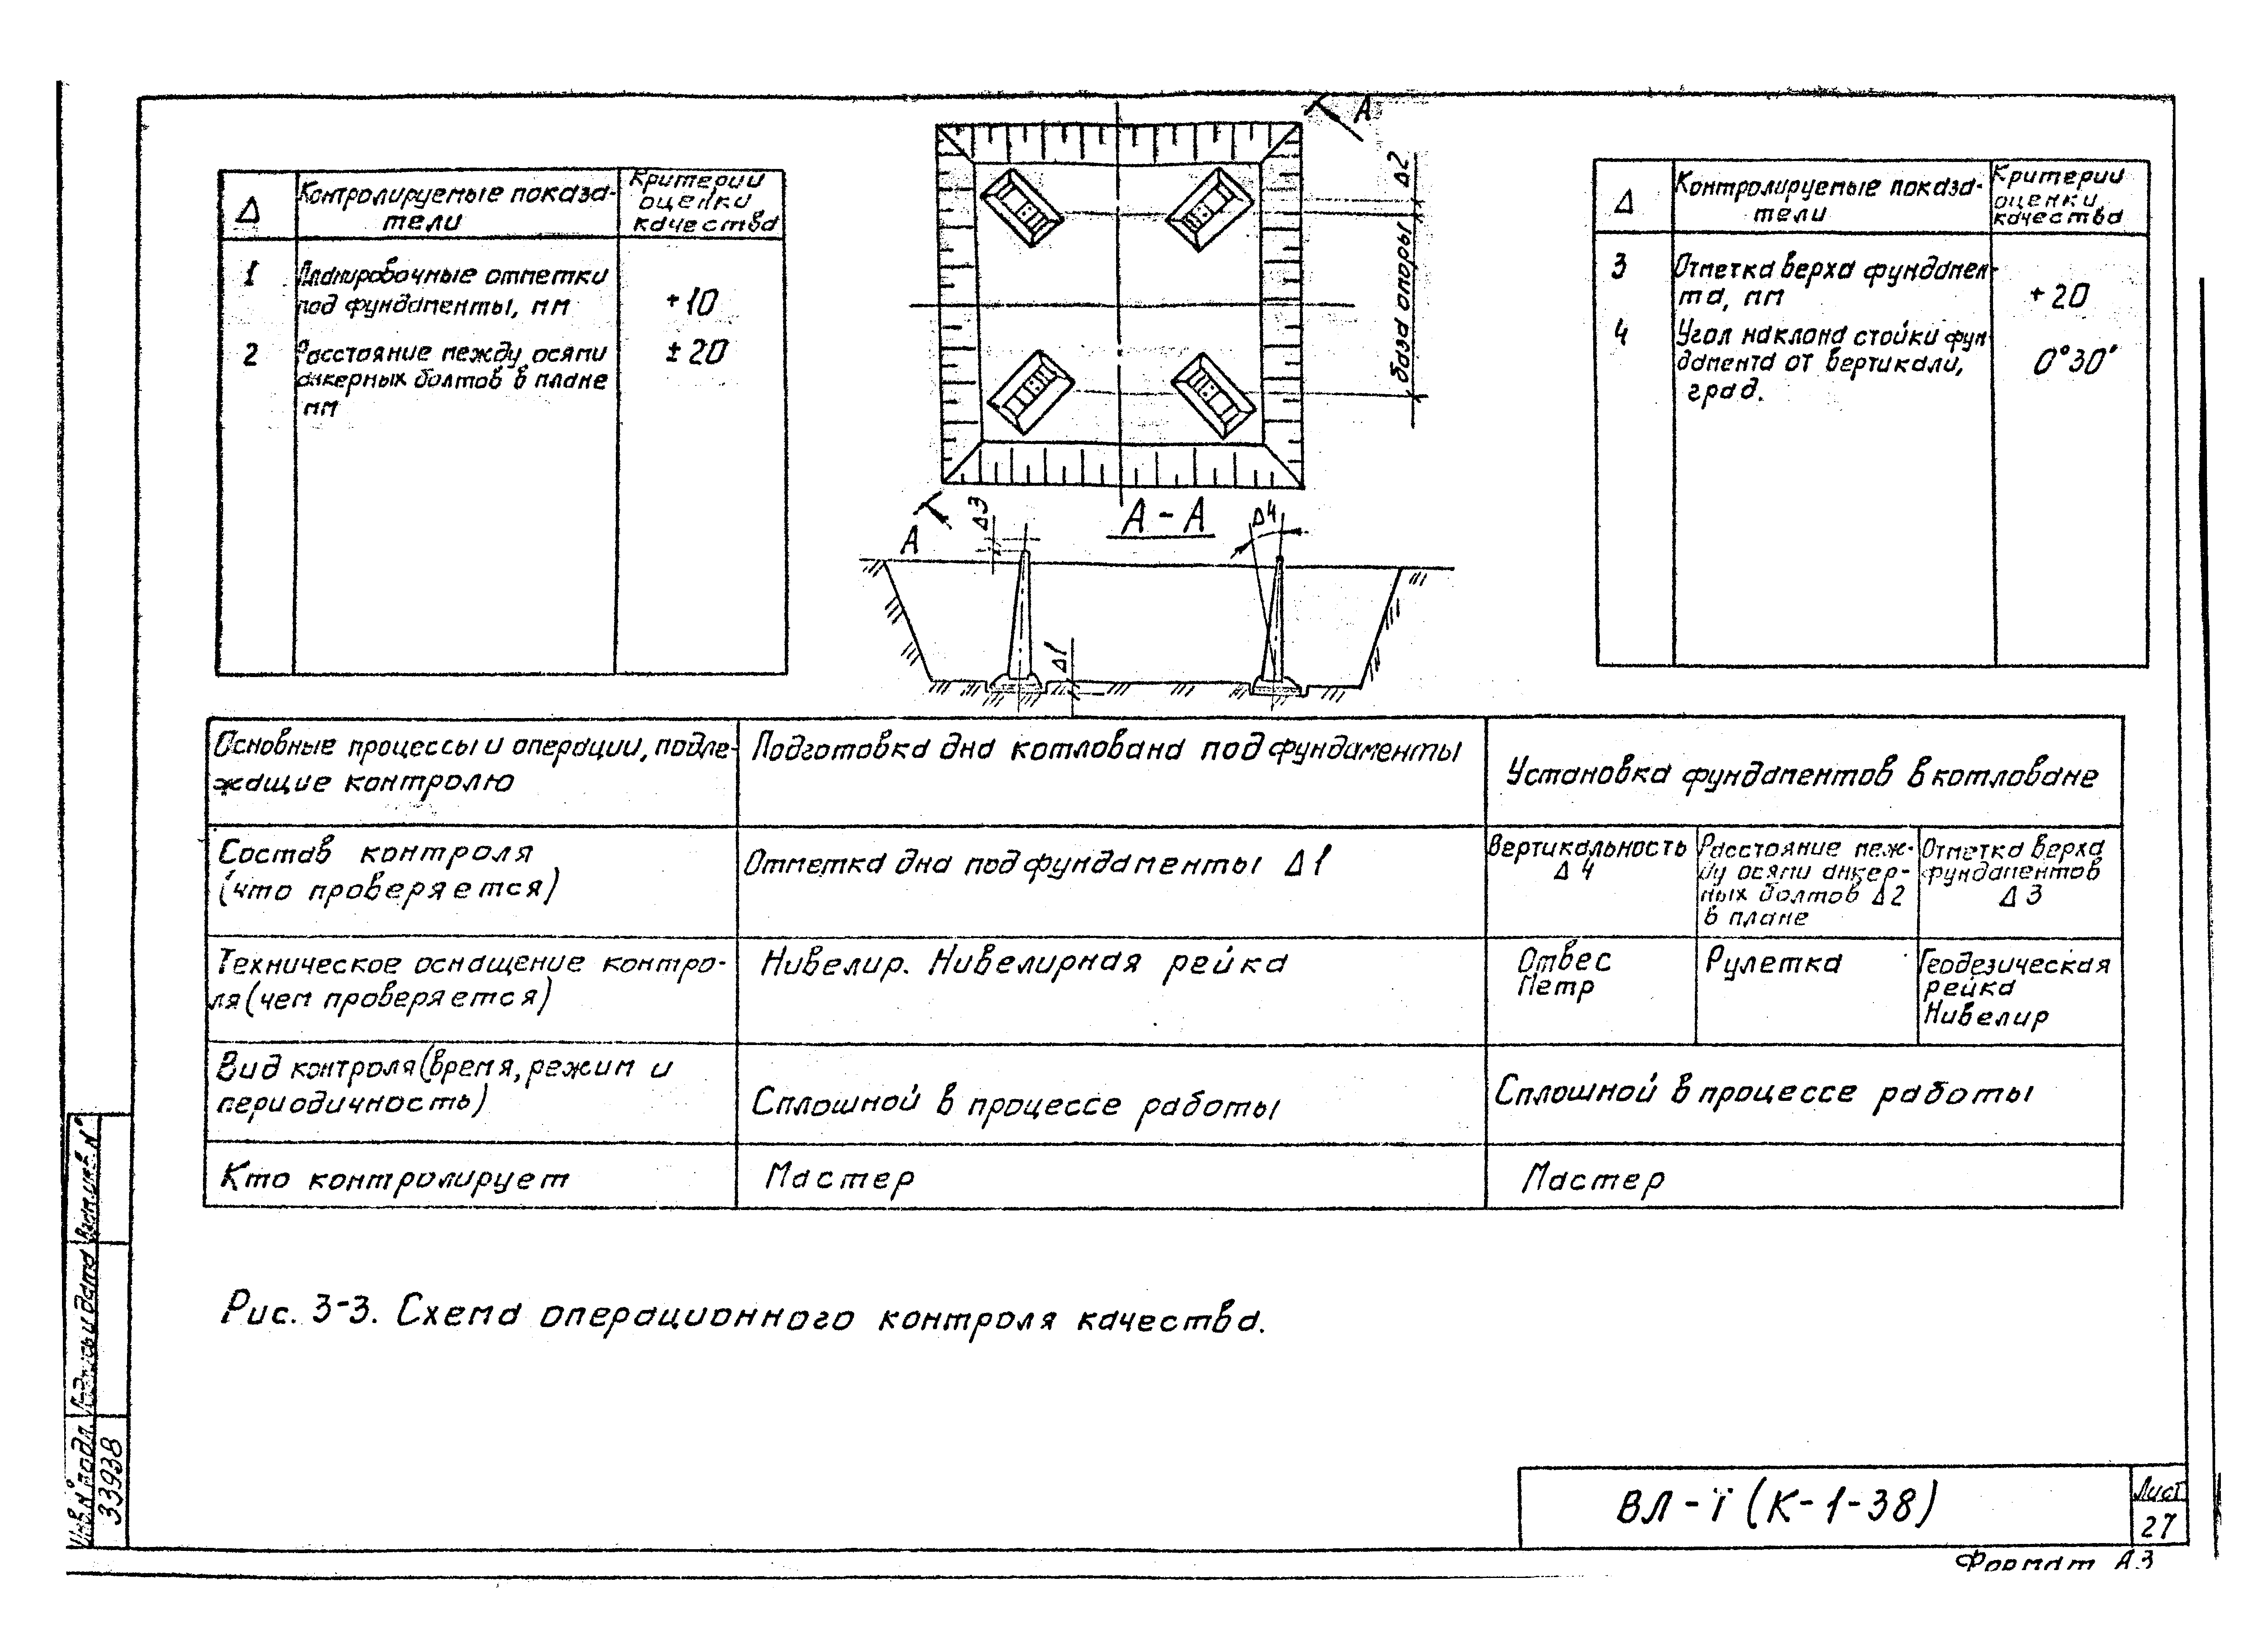 Δ
Контролируемые показа-
тели
Критерии
оценки
качества
1
Планировочные отметки
под фундаменты, мм
+10
2
Расстояние между осями
анкерных болтов в плане
мм
±20
А
Δ2
база опоры
А
А-А
Δ3
Δ4
Δ1
Δ
Контролируемые показа-
тели
Критерии
оценки
качества
3
Отметка верха фундамен-
та, мм
+20
4
Угол наклона стойки фун-
дамента от вертикали,
град.
0°30'
Основные процессы и операции, подле-
жащие контролю
Подготовка дна котлована под фундаменты
Установка фундаментов в котловане
Состав контроля
(что проверяется)
Отметка дна под фундаменты Δ1
Вертикальность
Δ4
Расстояние меж-
ду осями анкер-
ных болтов Δ2
в плане
Отметка верха
фундаментов
Δ3
Техническое оснащение контро-
ля (чем проверяется)
Нивелир. Нивелирная рейка
Отвес
Метр
Рулетка
Геодезическая
рейка
Нивелир
Вид контроля (время, режим и
периодичность)
Сплошной в процессе работы
Сплошной в процессе работы
Кто контролирует
Мастер
Мастер
Рис. 3-3. Схема операционного контроля качества.
Взам. инв. N°
Подпись и дата
Инв. N° подл.
33938
ВЛ-Ї (К-1-38)
Лист
27
Формат А3